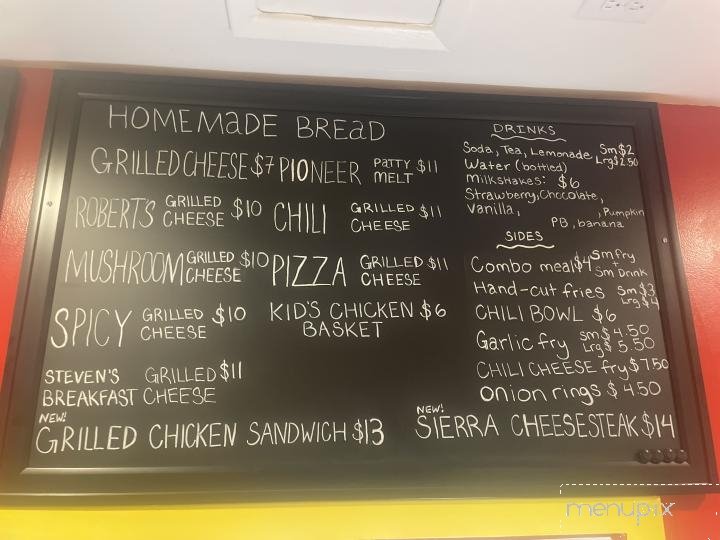 HOMEMADE BREAD
GRILLED CHEESE $7
ROBERTS GRILLED CHEESE $10
MUSHROOM GRILLED CHEESE $10
SPICY GRILLED CHEESE $10
STEVEN'S GRILLED $11
BREAKFAST CHEESE
PIONEER PATTY MELT $11
CHILI GRILLED CHEESE $11
PIZZA GRILLED CHEESE $11
KID'S CHICKEN $6
BASKET
NEW!
GRILLED CHICKEN SANDWICH $13
NEW!
SIERRA CHEESESTEAK $14
DRINKS
Soda, Tea, Lemonade Sm $2
Lrg $2.50
Water (bottled)
Milkshakes: $6
Strawberry, Chocolate,
Vanilla, , Pumpkin
PB, banana
SIDES
Combo meal $4 Sm fry
Sm Drink
Hand-cut fries Sm $3
Lrg $4
CHILI BOWL $6
Garlic fry Sm $4.50
Lrg $5.50
CHILI CHEESE fry $7.50
Onion rings $4.50
menupix